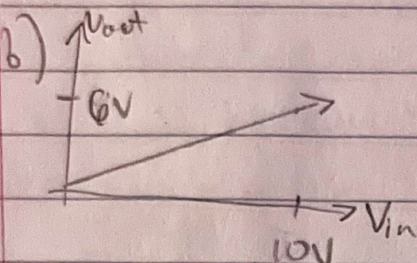 b)
Vout
6V
Vin
10V